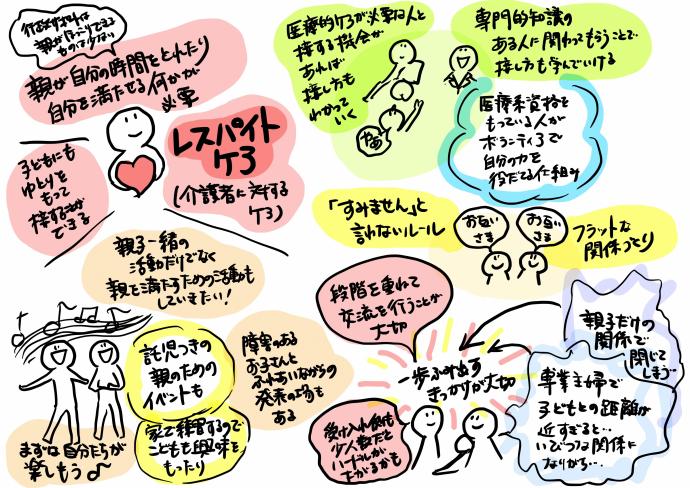 行政サポートは
親がゆっくりできる
ものは少ない
親が自分の時間をとれたり
自分を満たせる何かが
必要
レスパイト
ケア
(介護者に対する
ケア)
子どもにも
ゆとりを
もって
接する事が
できる
親子一緒の
活動だけでなく
親を満たすための活動も
していきたい!
託児つきの
親のための
イベントも
家で練習するので
こどもも興味を
もったり
まずは自分たちが
楽しもう♪
障害のある
お子さんと
ふれあいながらの
発表の場も
ある
医療的ケアが必要な人と
接する機会が
あれば
接し方も
わかって
いく
専門的知識の
ある人に関わってもらうことで
接し方も学んでいける
医療系資格を
もっている人が
ボランティアで
自分の力を
役だてる仕組み
「すみません」と
言わないルール
お互い
さま
お互い
さま
フラットな
関係づくり
段階を重ねて
交流を行うことが
大切
一歩ふみ出す
きっかけが大切
受け入れ側も
少人数だと
ハードルが
さがるかも
親子だけの
関係で
閉じて
しまう…
専業主婦で
子どもとの距離が
近すぎると…
いびつな関係に
なりがち…